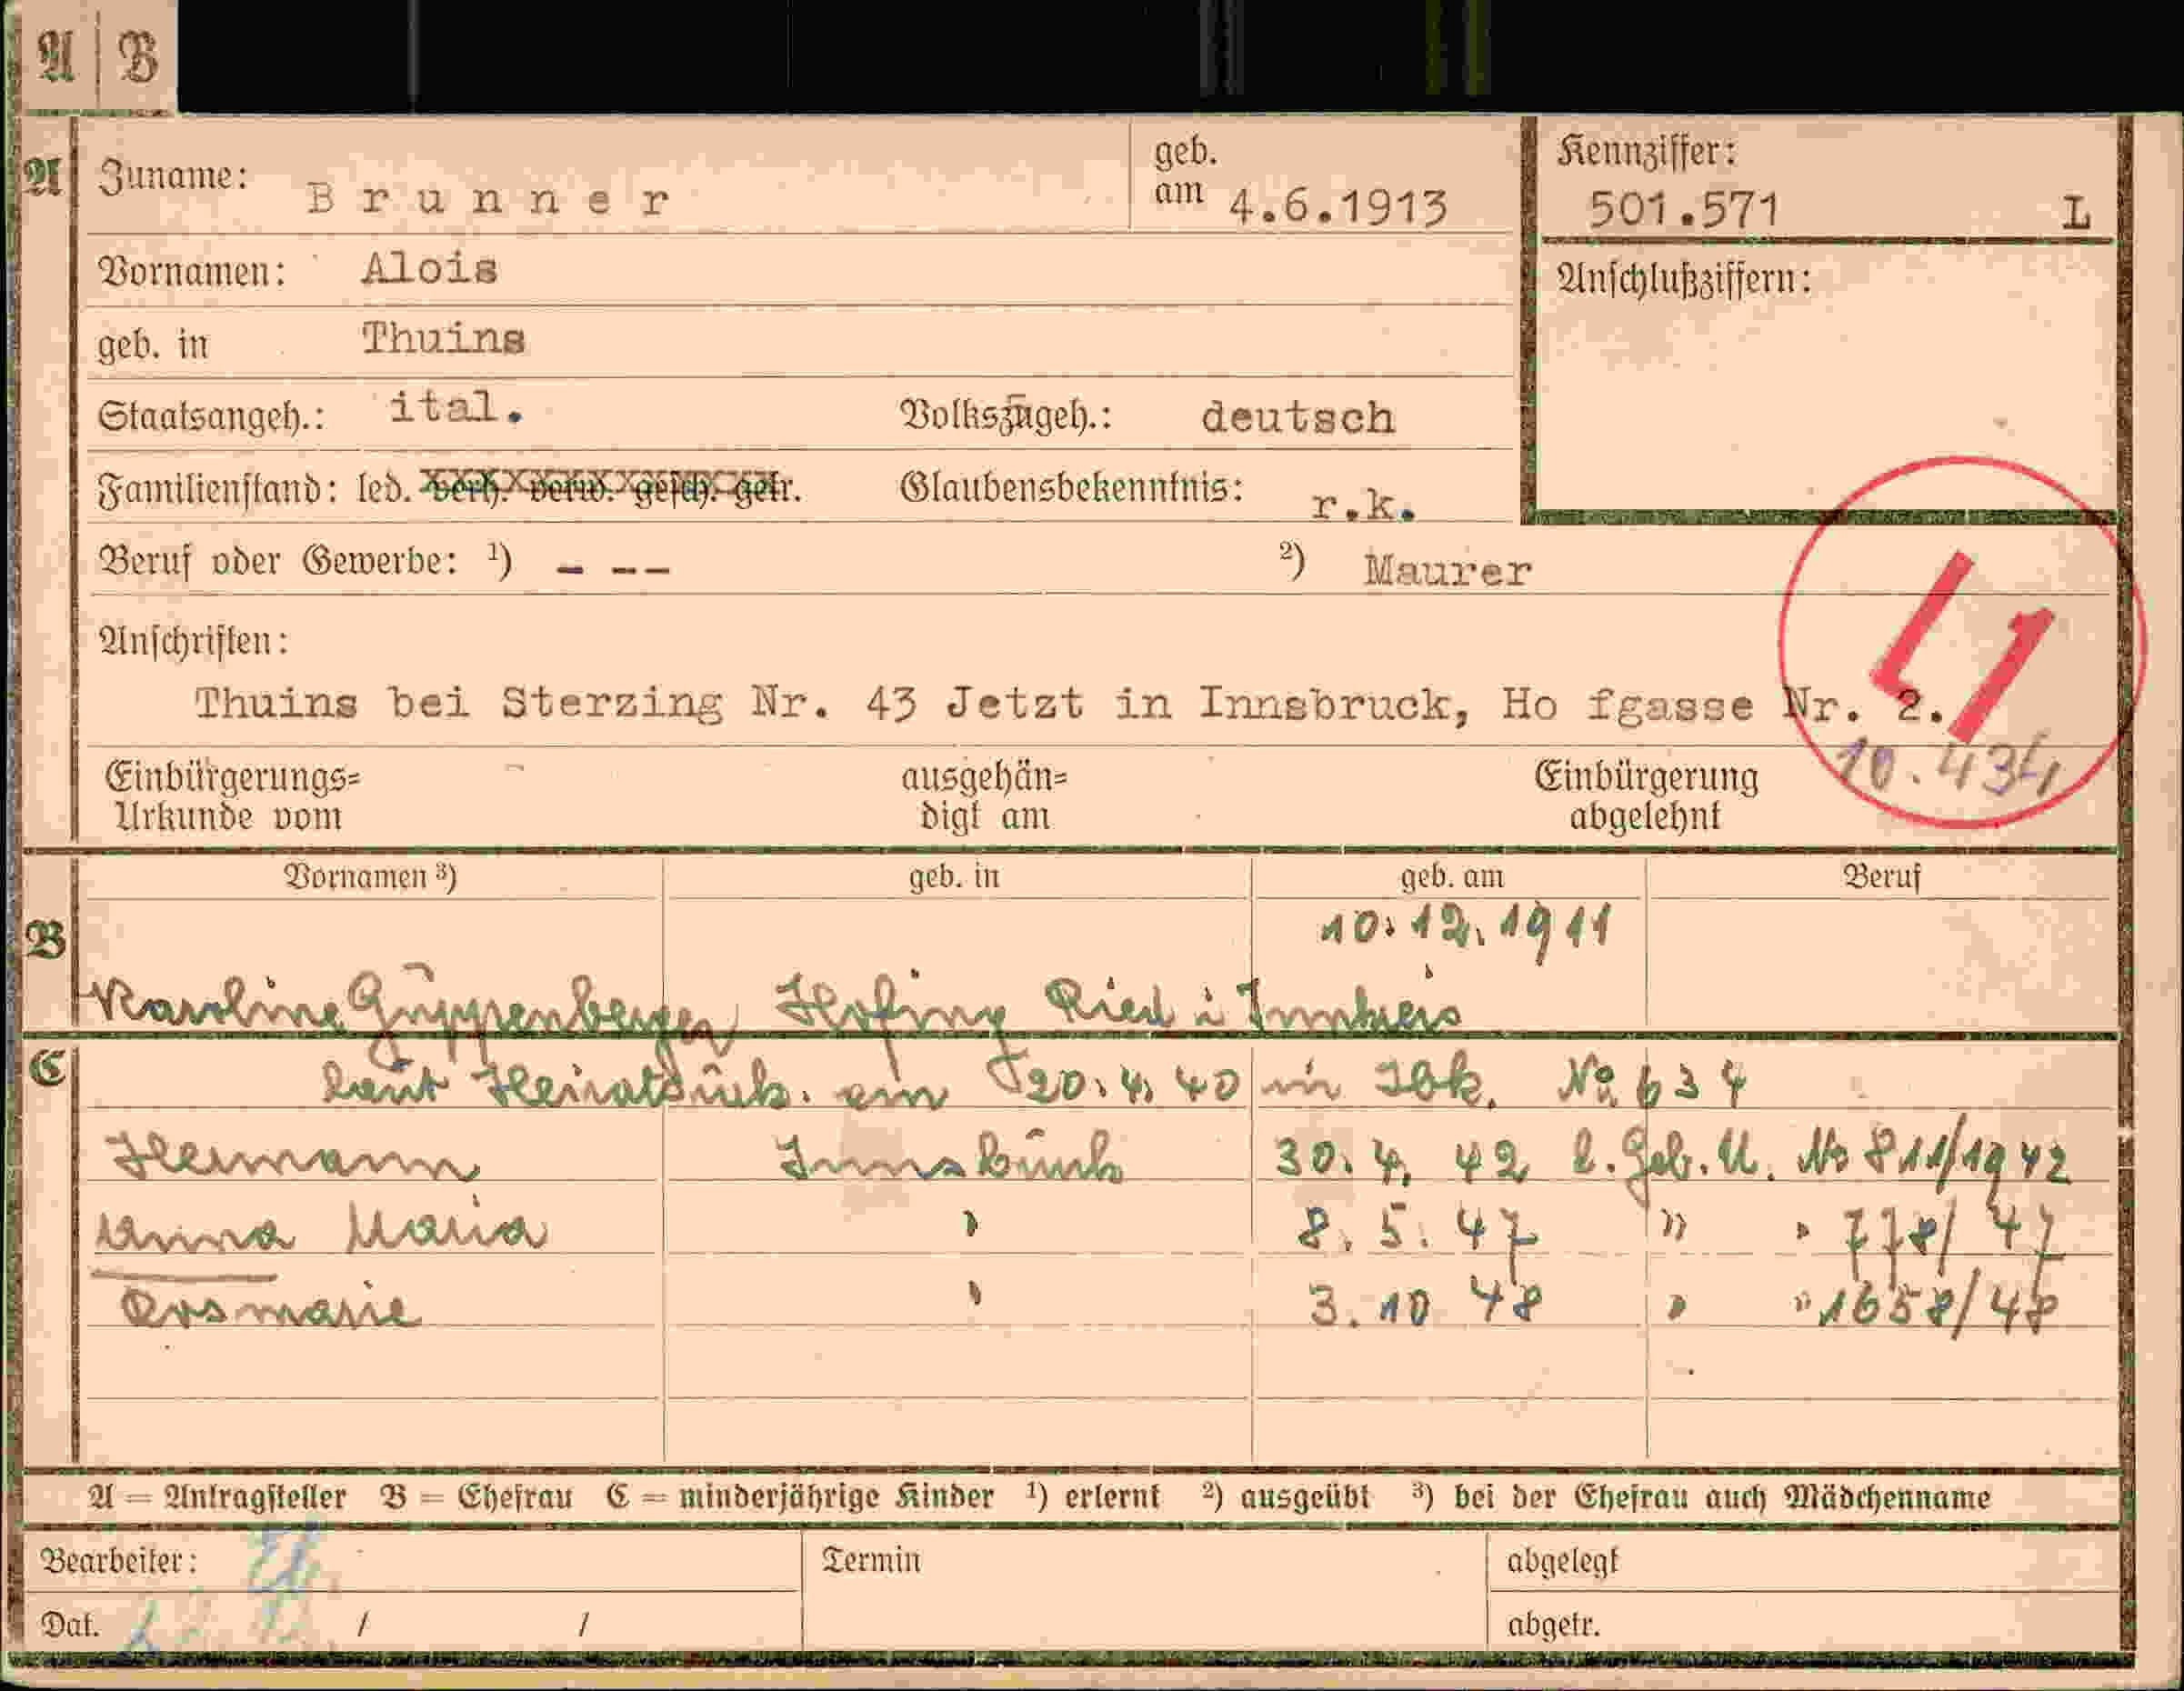 A | B
A Zuname: Brunner geb. am 4.6.1913 Kennziffer: 501.571 L
Vornamen: Alois Anschlußziffern:
geb. in Thuins
Staatsangeh.: ital. Volkszugeh.: deutsch
Familienstand: led. verh. verw. gesch. getr. Glaubensbekenntnis: r.k.
Beruf oder Gewerbe: ¹) - -- ²) Maurer
L1
Anschriften:
Thuins bei Sterzing Nr. 43 Jetzt in Innsbruck, Ho fgasse Nr. 2.
10.434
Einbürgerungs= ausgehän= Einbürgerung
Urkunde vom digt am abgelehnt
Vornamen ³) geb. in geb. am Beruf
B 10.12.1911
Karoline Hofing Ried i Innkreis
C laut Heiratsurk. am 20.4.40 in Ibk. No 634
Hermann Innsbruck 30.4.42 l. Geb. U. No 811/1942
Anna Maria " 8.5.47 " " 778/47
Rosmarie " 3.10 48 " " 1658/48
A = Antragsteller B = Ehefrau C = minderjährige Kinder ¹) erlernt ²) ausgeübt ³) bei der Ehefrau auch Mädchenname
Bearbeiter: Termin abgelegt
Dat. / / abgetr.